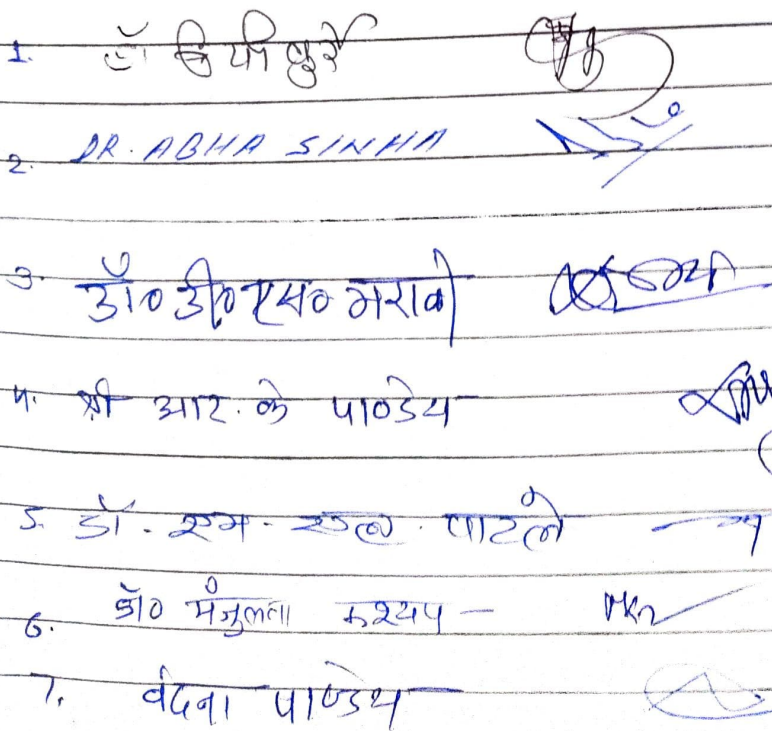 1. डॉ
2. DR. ABHA SINHA
3. डॉ० डी० एस० मरावी
4. श्री आर. के पाण्डेय
5. डॉ. एम. एल. पाटले
6. डॉ० मंजुलता कश्यप -
7. वंदना पाण्डेय